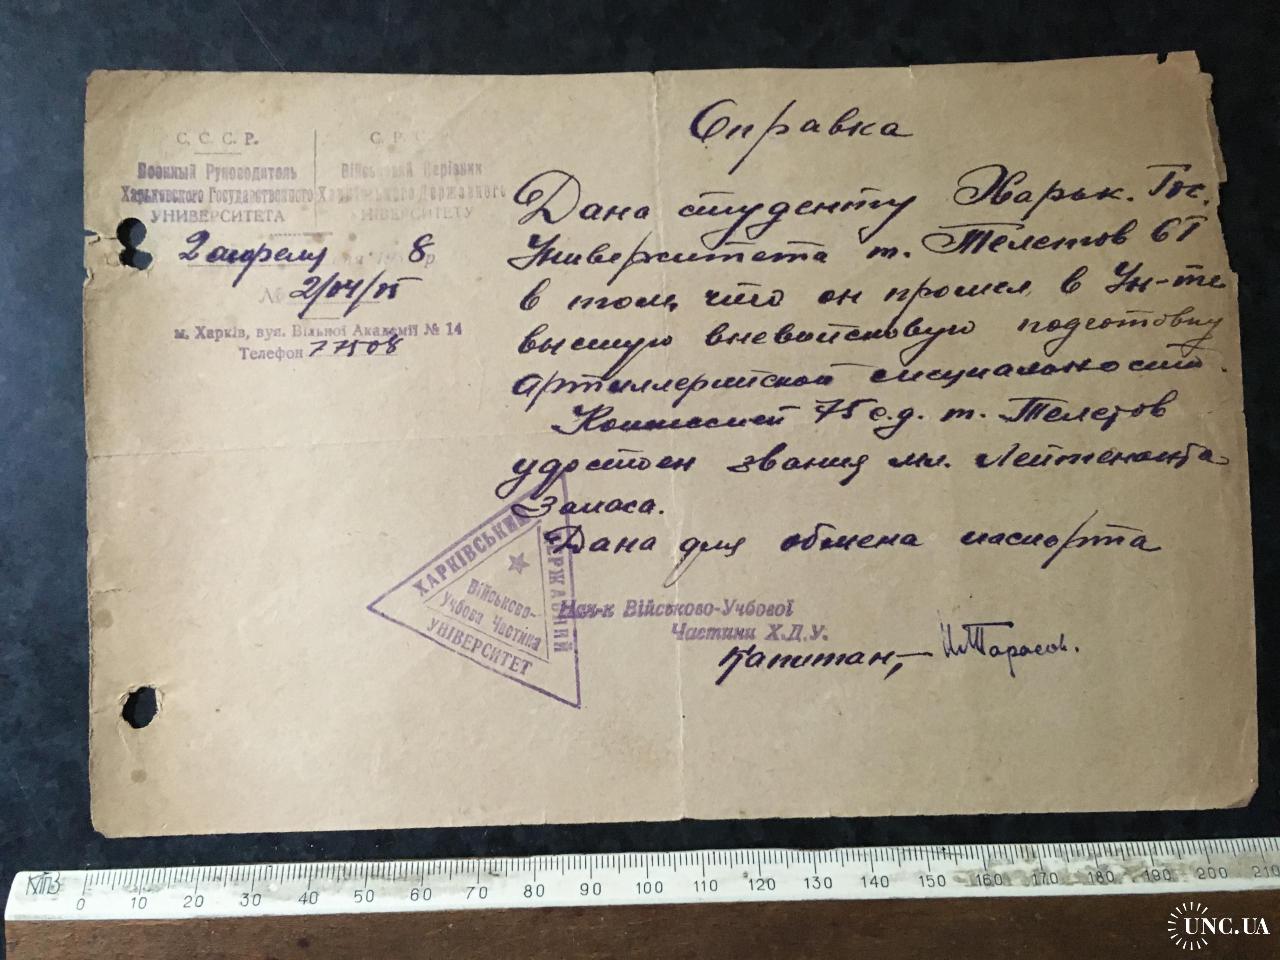 С. С. С. Р.
Военный Руководитель
Харьковского Государственного
УНИВЕРСИТЕТА
С. Р.
Військовий Керівник
Харківського Державного
УНІВЕРСИТЕТУ
2 апреля 8 р
№ 2/04/
м. Харків, вул. Вільної Академії № 14
Телефон 77508
Справка
Дана студенту Харьк. Гос.
Университета т. Телетов
в том, что он прошел в Ун-те
высшую вневойсковую подготовку
артиллерийской специальности.
Комиссией 75 с.д. т. Телетов
удостоен звания мл. Лейтенанта
запаса.
Дана для обмена паспорта
ХАРКІВСЬКИЙ
ДЕРЖАВНИЙ
УНІВЕРСИТЕТ
Військово-
Учбова Частина
Нач-к Військово-Учбової
Частини Х.Д.У.
Капитан, Тарасов.
КПЗ
0 10 20 30 40 50 60 70 80 90 100 110 120 130 140 150 160 170 180 190 200 210
UNC.UA